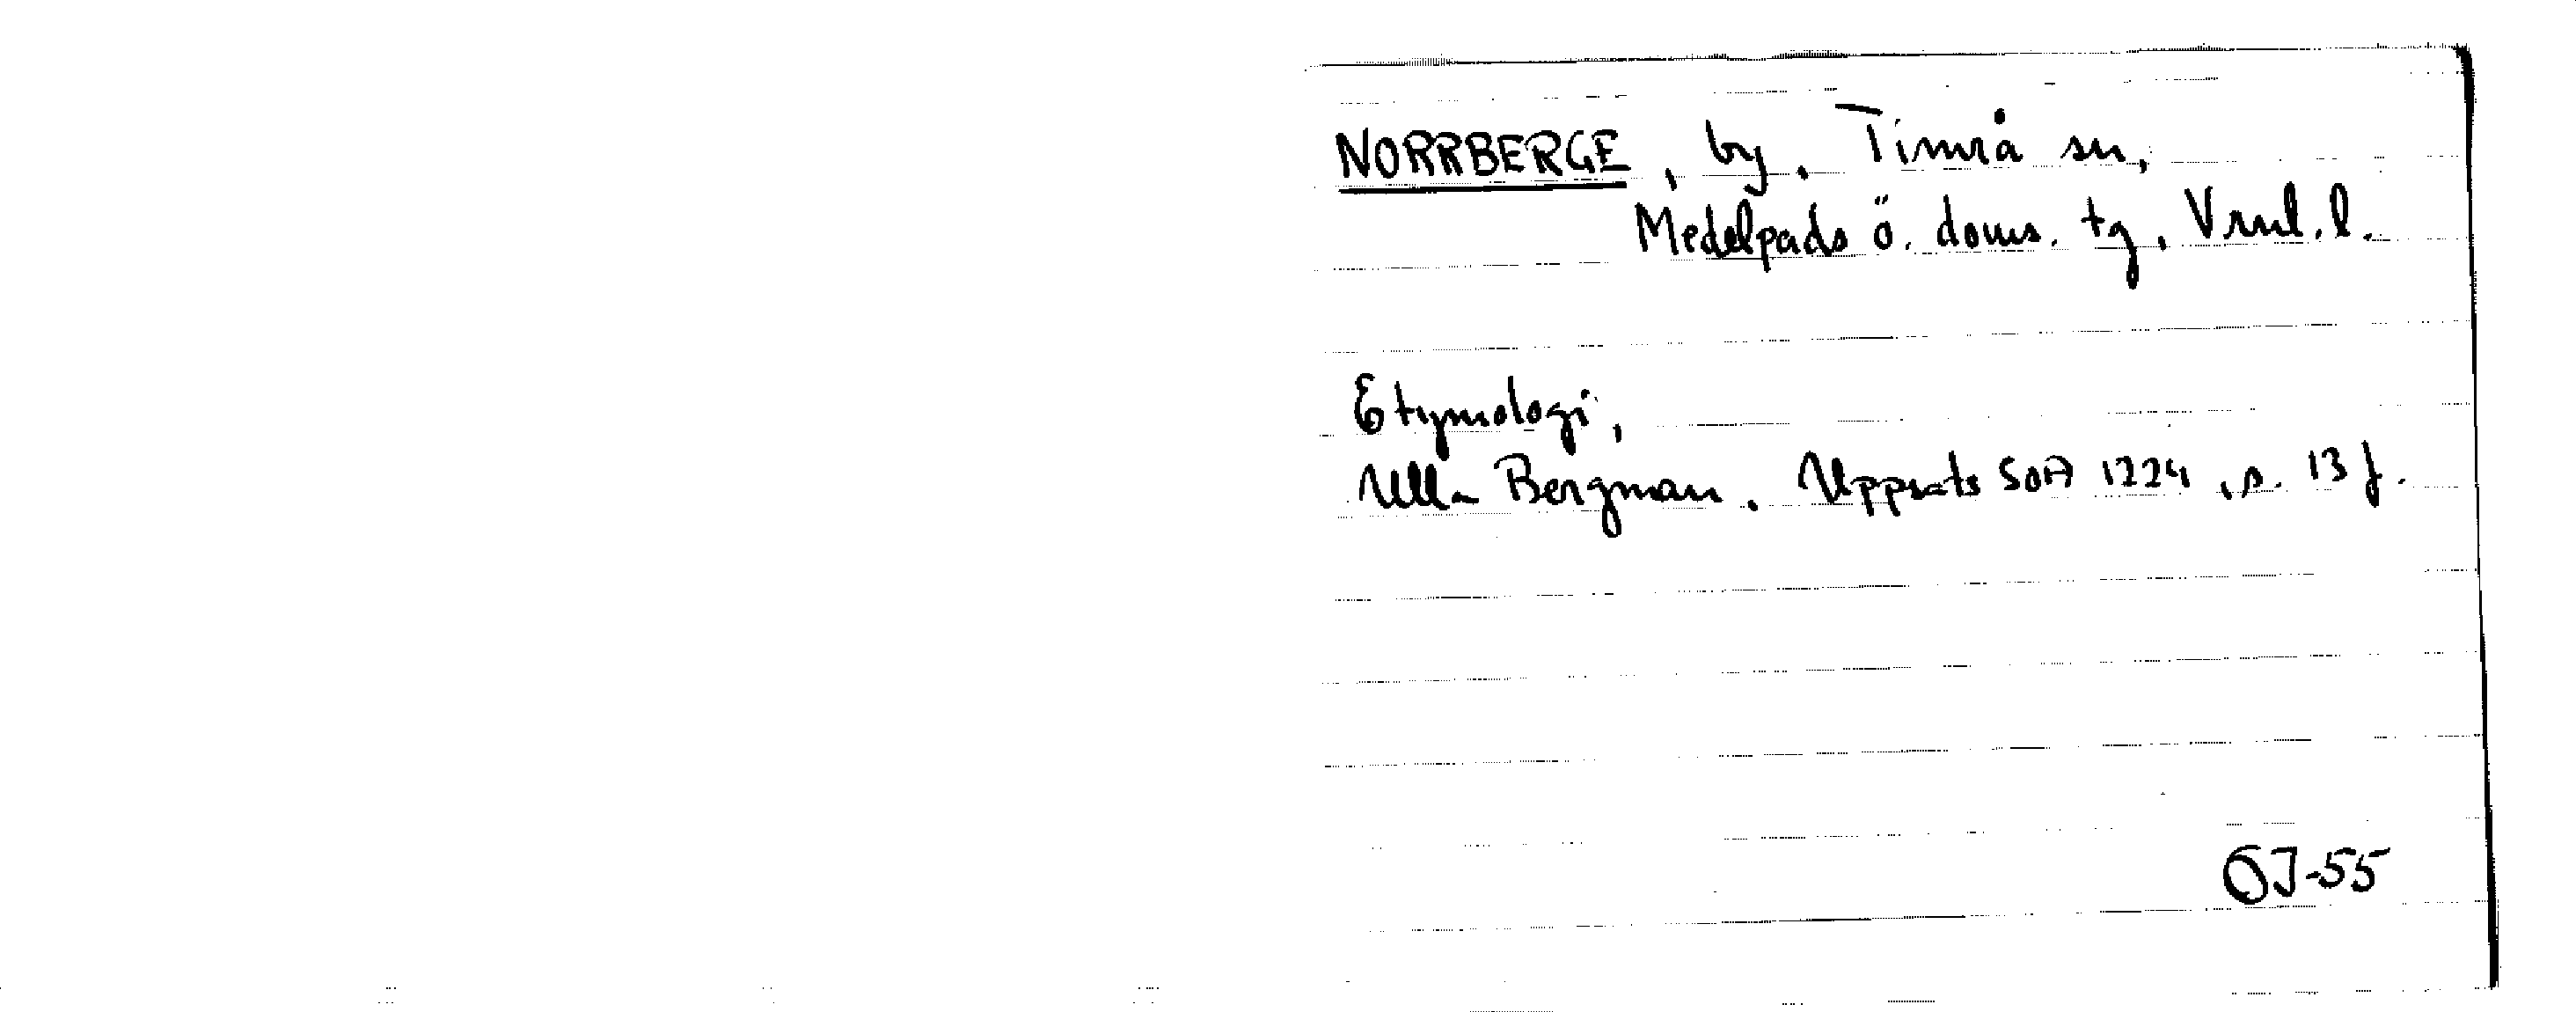 NORRBERGE, by. Timrå sn,
Medelpads ö. doms. tg, Vrnl. l.
Etymologi,
Ulla Bergman. Uppsats SOA 1224, s. 13 f.
OJ-55